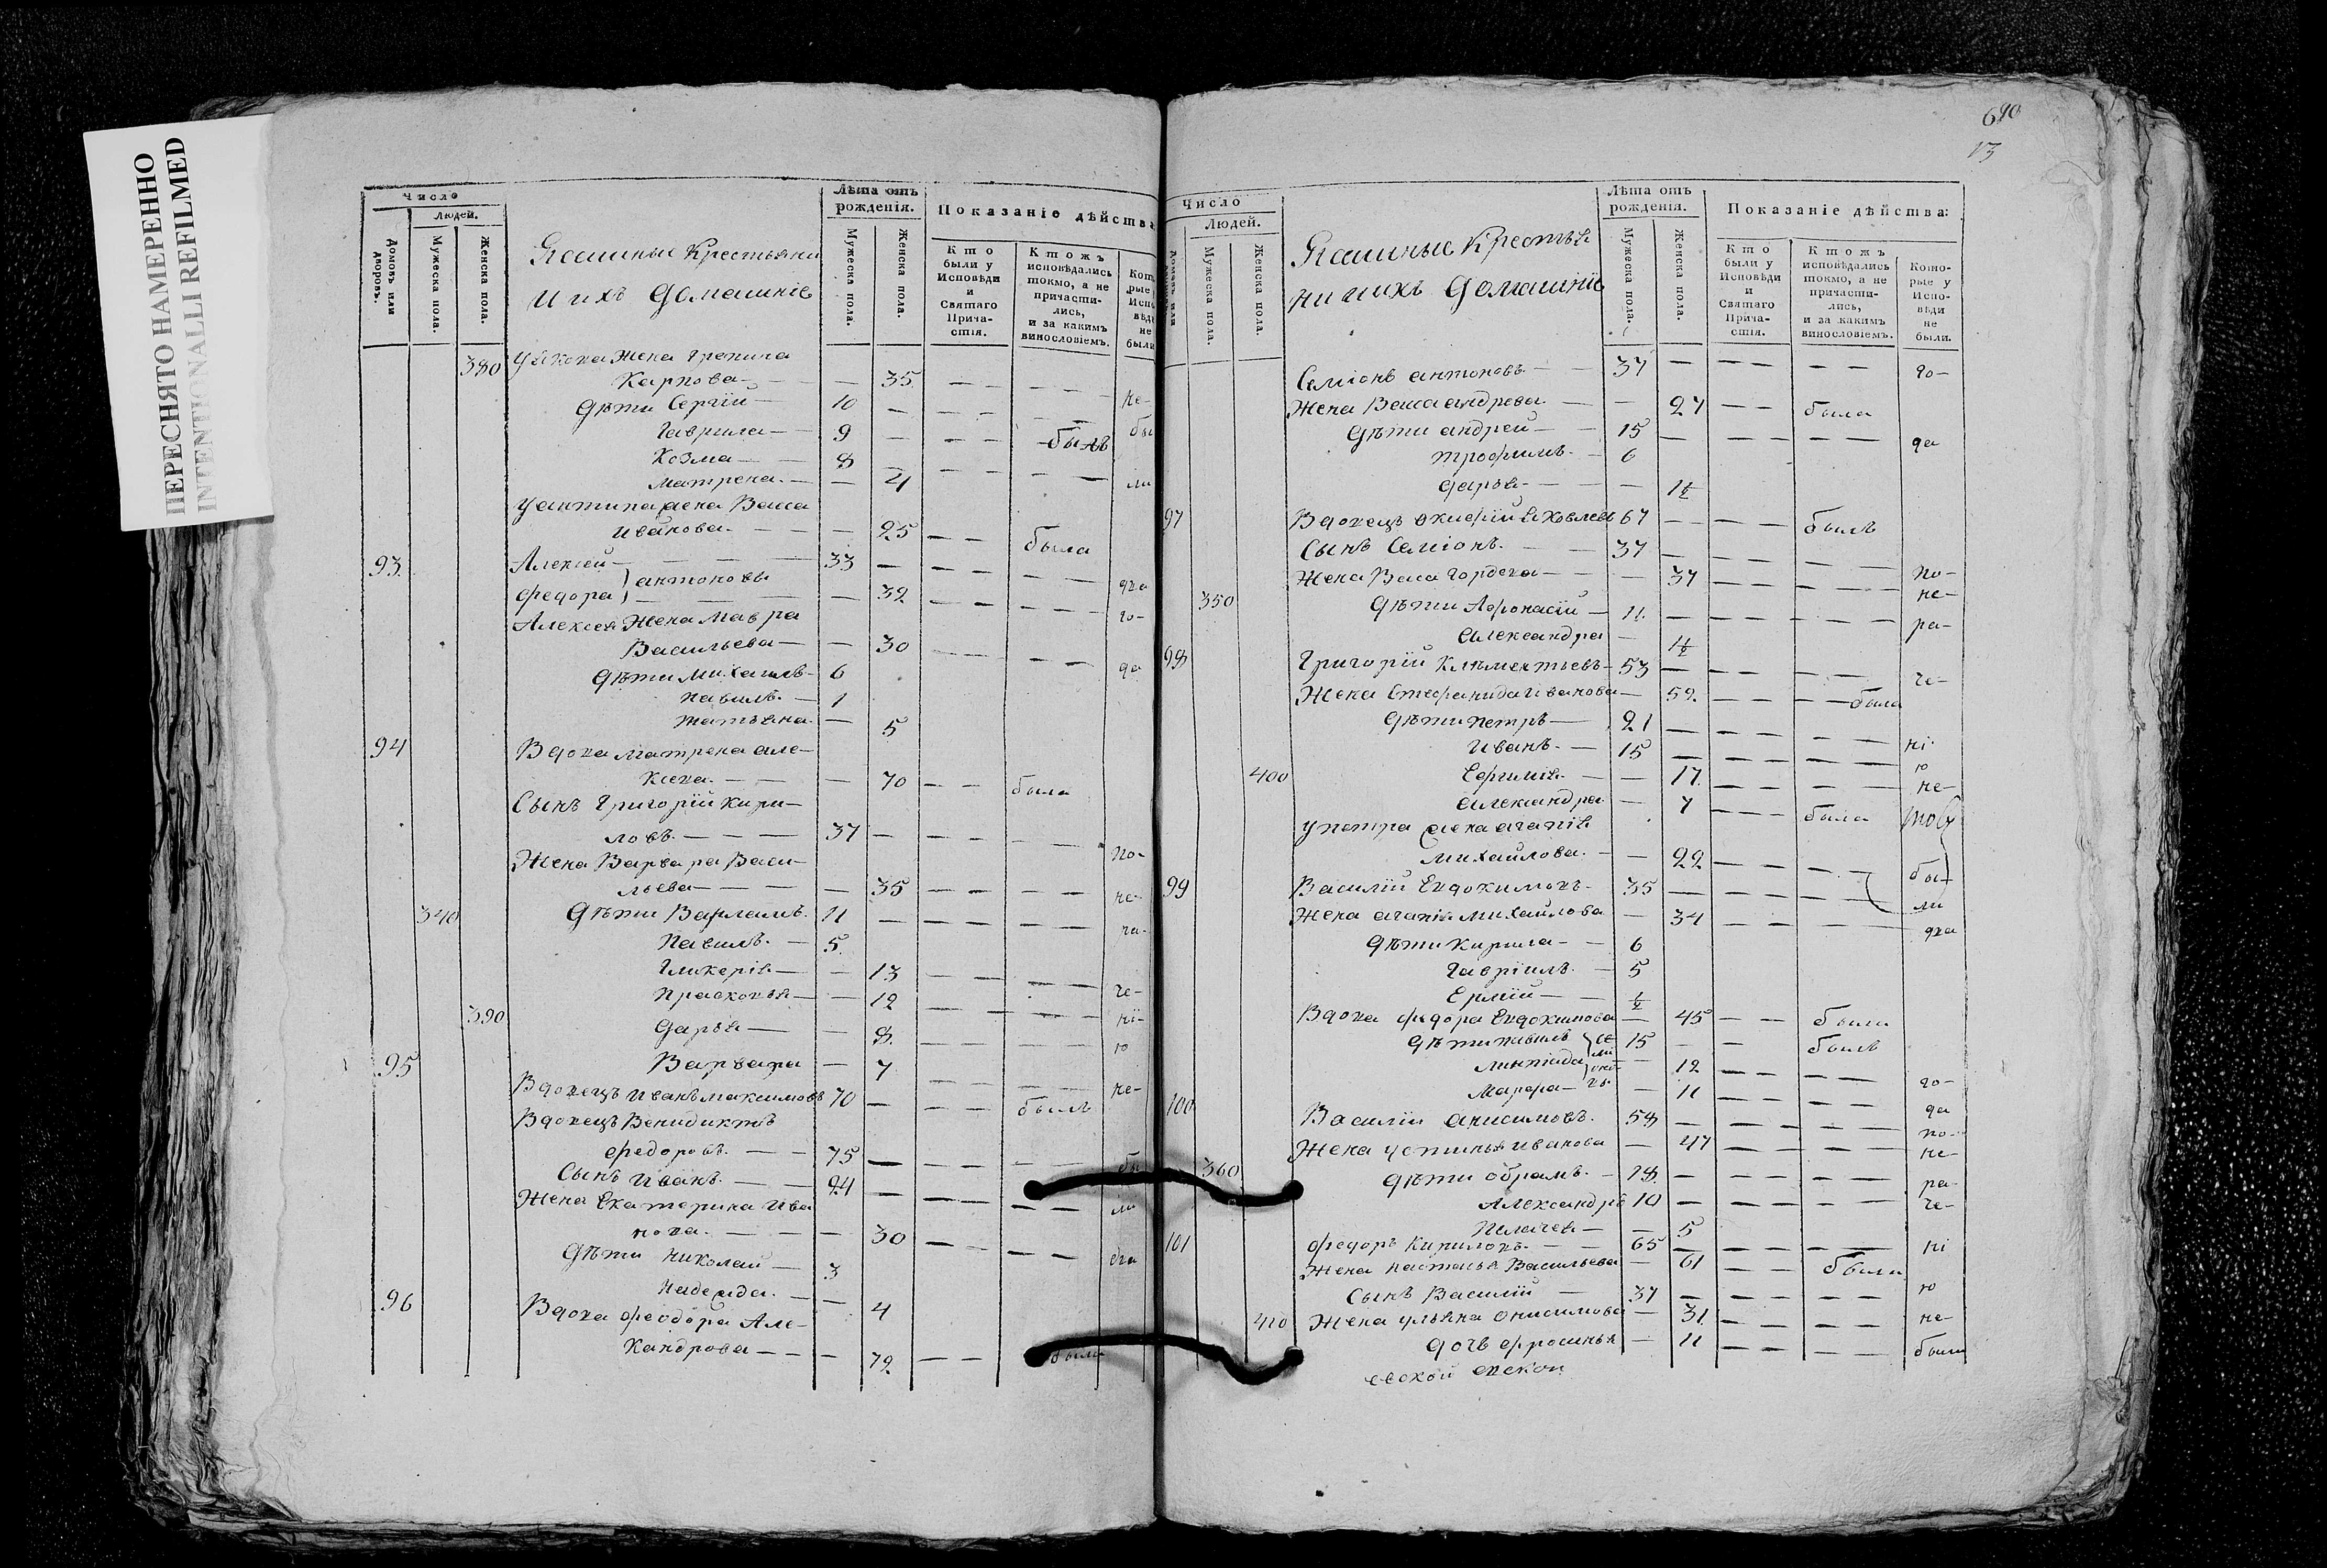 ПЕРЕСНЯТО НАМЕРЕННО
INTENTIONALLI REFILMED
Число
Людей.
Домовъ или дворовъ.
Мужеска пола.
Женска пола.
Крестьяни
и ихъ домашніе
Лѣта отъ рожденія.
Мужеска пола.
Женска пола.
Показаніе дѣйства
Кто были у Исповѣди и Святаго Прича-стія.
Ктожъ исповѣдались токмо, а не причасти-лись, и за какимъ винословіемъ.
Кот рые Исп вѣд не были
380 жена
Карпова 35
дѣти Сергій 10 не-
Гаврила 9 былъ бы
Козма 8
Матрена 4 ли
у антипа жена Васса
Иванова 25 была
93 Алексей 33
федора } антоновы 32
Алексея жена Мавра го-
Васильева 30
дѣти Михаилъ 6 да
павилъ 1
татьяна 5
94 Вдова матрена але-
ксева 70 была
Сынъ Григорій Кири-
ловъ 37 по-
Жена Варвара Васи-
льева 35 не-
340 дѣти Варламъ 11 ра-
Павилъ 5
Гликерія 13 че-
Прасковья 12 ні-
390 Дарья 8 ю
95 Варвара 7 не-
Вдовецъ Иванъ максимовъ 70 былъ
Вдовецъ Венидиктъ
федоровъ 75 бы
Сынъ Иванъ 24 ли
Жена Екатерина Ива
нова 30
дѣти Николай 3
Надежда 4
96 Вдова феодора Але-
ксандрова 72 была
690
13
Число
Людей.
Домовъ или
Мужеска пола.
Женска пола.
Крестья
ни и ихъ домашніе
Лѣта отъ рожденія.
Мужеска пола.
Женска пола.
Показаніе дѣйства:
Кто были у Исповѣди и Святаго Прича-стія.
Ктожъ исповѣдались токмо, а не причасти-лись, и за какимъ винословіемъ.
Кото-рые у Испо-вѣди не были.
Семіонъ антоновъ 37 го-
Жена Васса андрева 27 была
дѣти андрей 15 да
трофимъ 6
дарья 1½
97 Вдовецъ Яковлевъ 67 былъ
Сынъ Семіонъ 37 по-
Жена Васа Гордева 37 не-
350 дѣти Афонасій 11 ра-
александра 1½
98 Григорій Климентьевъ 53 че-
Жена Стефанида Иванова 52 была
дѣти петръ 21 ні
Иванъ 15 ю
400 Ефимія 17 не-
александра 7 была
у петра жена агапія
михайлова 22 бы-
99 Василій Евдокимовъ 35 ли
Жена агапія михайлова 34
дѣти Кирила 6
Гавріилъ 5
Ермій ½
Вдова федора Евдокимова 45 была
дѣти павилъ 15 былъ
12 го-
Марфа 11 да
100 Василій анисимовъ 58 по-
Жена устинья Иванова 47 не
360 дѣти абрамъ 18 ра-
Александръ 10 че-
Пелагея 5
101 федоръ Кириловъ 65 ні
Жена настасья Васильева 61 была
Сынъ Василій 37 ю
410 Жена ульяна онисимова 31 не-
дочь фросинья 11 были